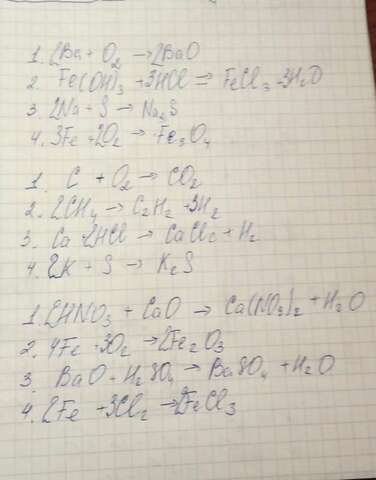 1. 2Ba + O₂ → 2BaO
2. Fe(OH)₃ + 3HCl = FeCl₃ 3H₂O
3. 2Na + S → Na₂S
4. 3Fe + 2O₂ → Fe₃O₄
1. C + O₂ → CO₂
2. 2CH₄ → C₂H₂ + 3H₂
3. Ca 2HCl → CaCl₂ + H₂
4. 2K + S → K₂S
1. 2HNO₃ + CaO → Ca(NO₃)₂ + H₂O
2. 4Fe + 3O₂ → 2Fe₂O₃
3. BaO + H₂SO₄ → BaSO₄ + H₂O
4. 2Fe + 3Cl₂ → 2FeCl₃